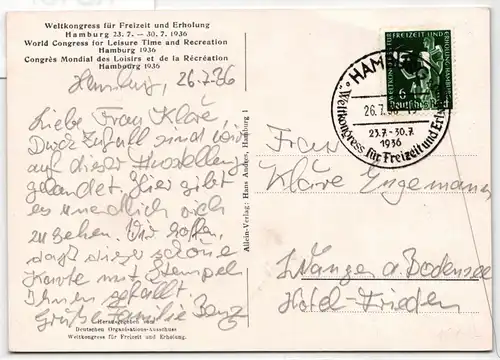 Weltkongress für Freizeit und Erholung
Hamburg 23. 7. – 30. 7. 1936
World Congress for Leisure Time and Recreation
Hamburg 1936
Congrès Mondial des Loisirs et de la Récréation
Hambourg 1936
Hamburg, 26.7.36
Liebe Frau Kläre
Durch Zufall sind wir
auf dieser Ausstellung
gelandet. Hier gibt
es unendlich viel
zu sehen. Wir hoffen,
daß diese schöne
Karte mit Stempel
Ihnen gefällt
Grüße Familie Benz
Herausgegeben vom
Deutschen Organisations-Ausschuss
Weltkongress für Freizeit und Erholung.
Allein-Verlag: Hans Andres, Hamburg 1
HAMBURG
26.7.36
Weltkongress für Freizeit und Erholung
23.7.-30.7.
1936
Deutsches Reich
Frau
Kläre Engemann
Wangen a. Bodensee
Hotel-Frieden